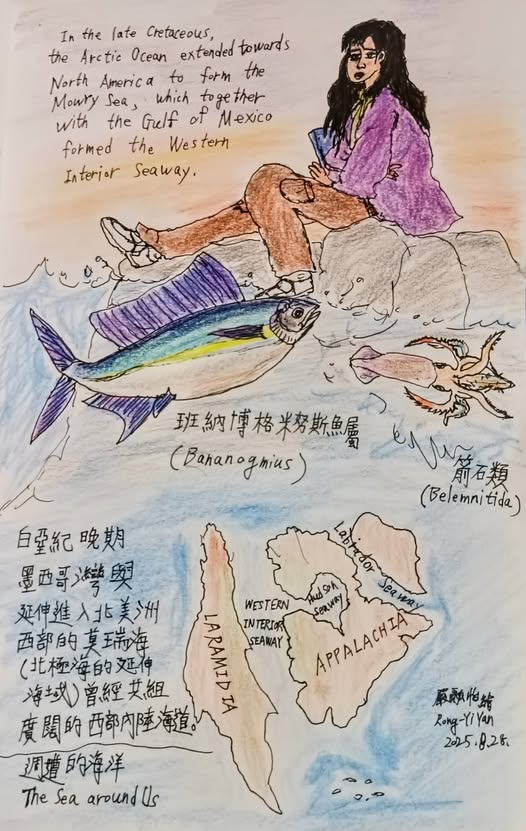 In the late Cretaceous,
the Arctic Ocean extended towards
North America to form the
Mowry Sea, which together
with the Gulf of Mexico
formed the Western
Interior Seaway.
班納博格米努斯魚屬
(Bananogmius)
箭石類
(Belemnitida)
白堊紀晚期
墨西哥灣與
延伸進入北美洲
西部的莫瑞海
(北極海的延伸
海域)曾經共組
廣闊的西部內陸海道。
周遭的海洋
The Sea around Us
LARAMIDIA
WESTERN
INTERIOR
SEAWAY
Hudson
Seaway
Labrador Seaway
APPALACHIA
Rong-Yi Yan
2025.8.28.